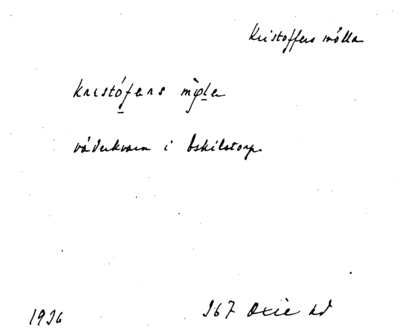 Kristoffers mölla
kristófens mø̀le
väderkvarn i Eskilstorp
1936
367 Oxie hd